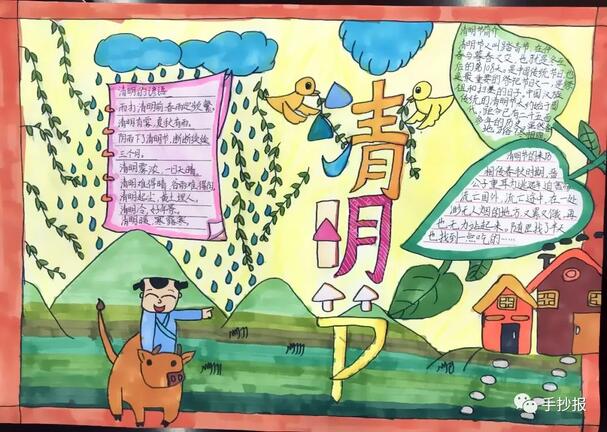 清明的谚语
雨打清明前,春雨定频繁。
清明有雾,夏秋有雨。
阴雨下了清明节,断断续续
三个月。
清明雾浓,一日天晴。
清明难得晴,谷雨难得阴。
清明起尘,黄土埋人。
清明冷,好年景。
清明暖,寒露寒。
清明节
清明节简介
清明节又叫踏青节,在仲
春与暮春之交,也就是冬至
后的第108天。是中国传统节日,也
是最重要的祭祀节日之一,是祭
祖和扫墓的日子。中国汉族
传统的清明节大约始于周
代,距今已有二千五百
多年的历史。
清明节的来历
相传春秋时期,晋
公子重耳为逃避迫害而
流亡国外,流亡途中,在一处
渺无人烟的地方,又累又饿,再
也无力站起来。随臣找了半天
也找不到一点吃的……
手抄报